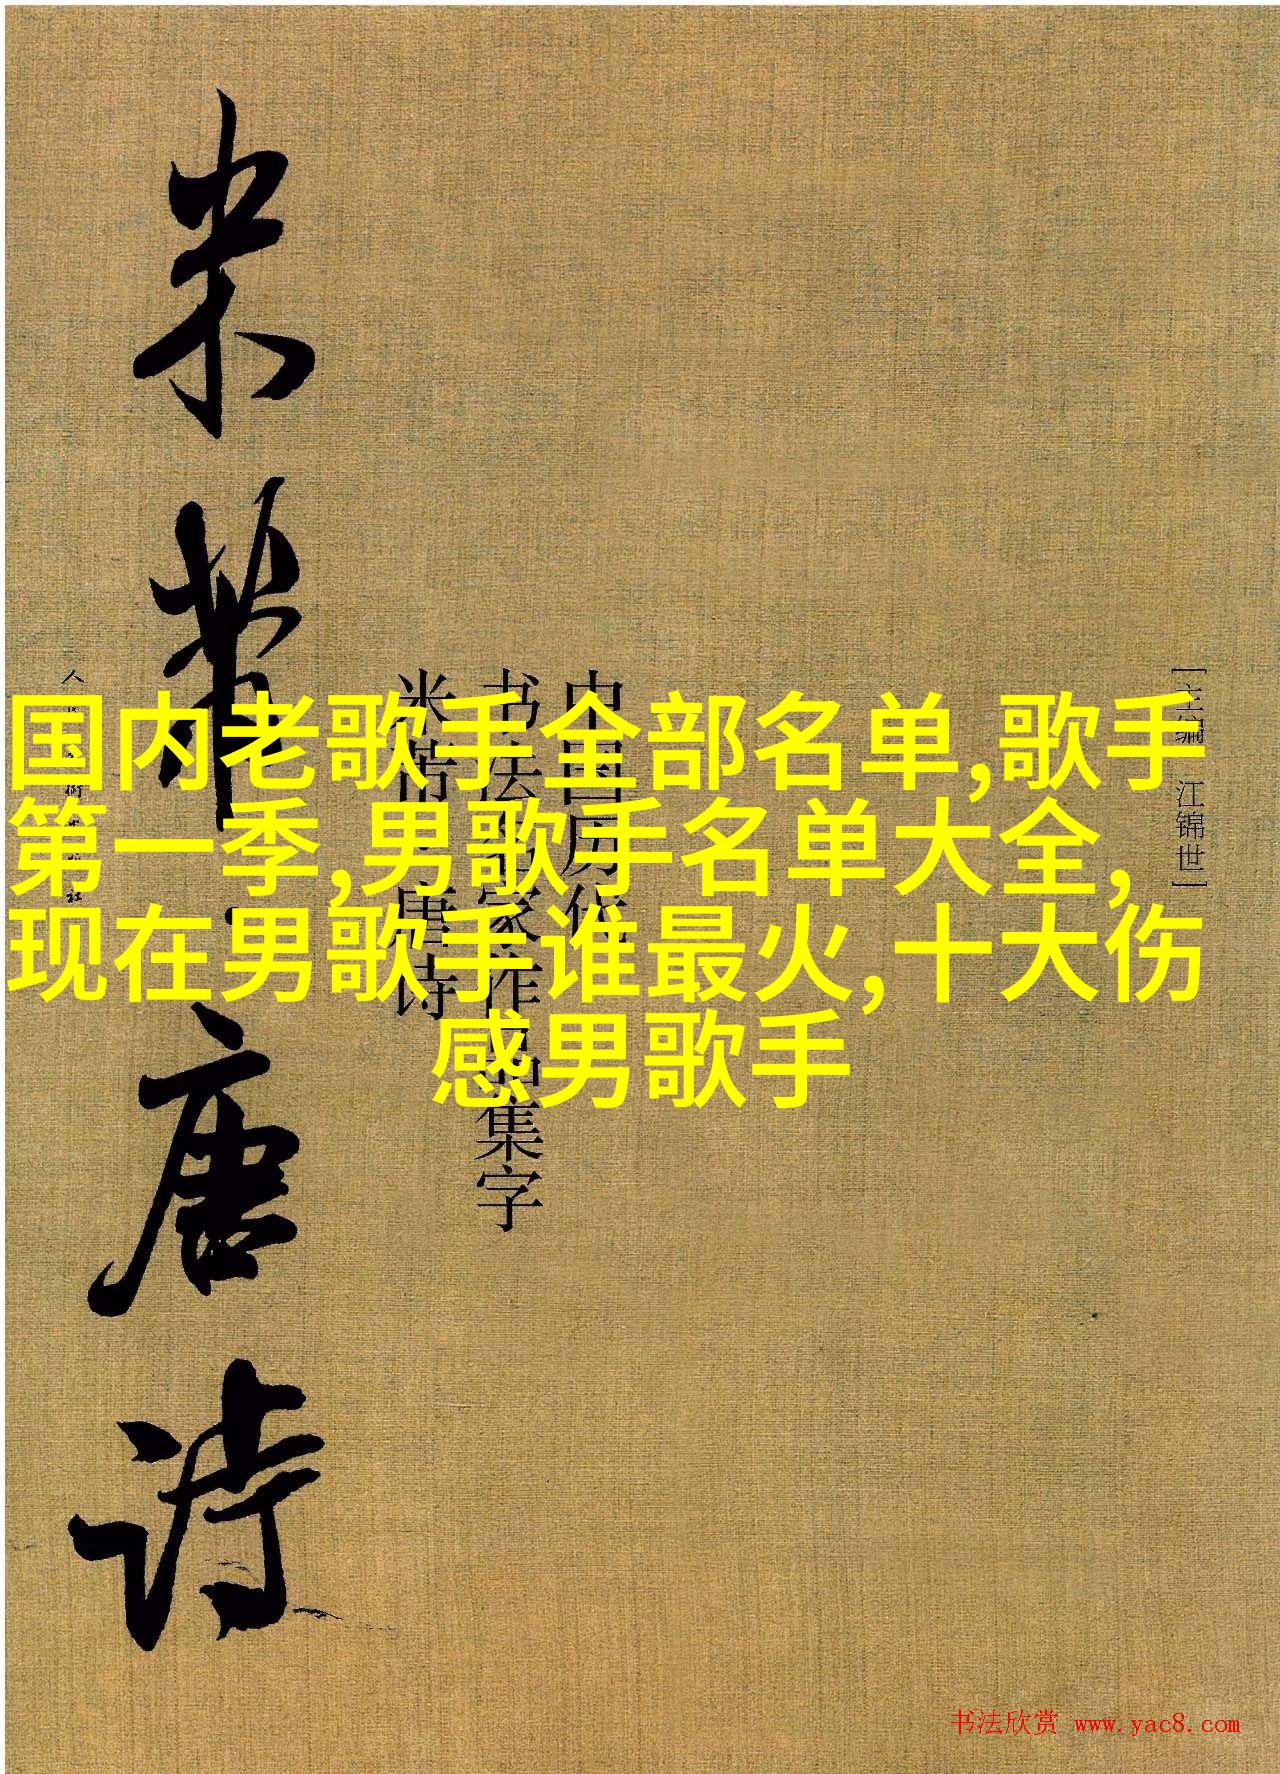 国内老歌手全部名单,歌手
第一季,男歌手名单大全,
现在男歌手谁最火,十大伤
感男歌手
[主编 江锦世]
中国历代
书法名家作品集字
米芾·唐诗
米芾·唐诗
社
书法欣赏 www.yac8.com